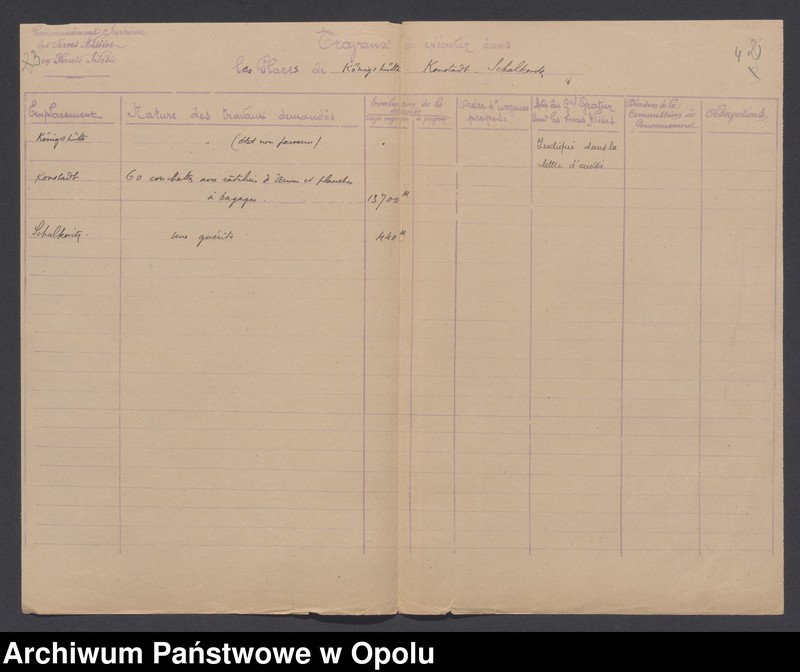 Commandement Supérieur
des Forces Alliées
en Haute Silésie
Travaux à exécuter dans
les Places de Königshütte - Konstadt - Schalkowitz
4 2
Emplacement
Nature des travaux demandés
Evaluation de la
Ordre d'urgence
proposé
Avis du Gal Gratier
Cmt les Forces Alliées
Décision de la
Commission de
Gouvernement
Observations
Königshütte
" (état non parvenu)
"
Indiqué dans la
lettre d'envoi
Konstadt
60 couchettes avec râteliers d'armes et planches
à bagages.
13700 M
Schalkowitz.
Une guérite
440 M
Archiwum Państwowe w Opolu